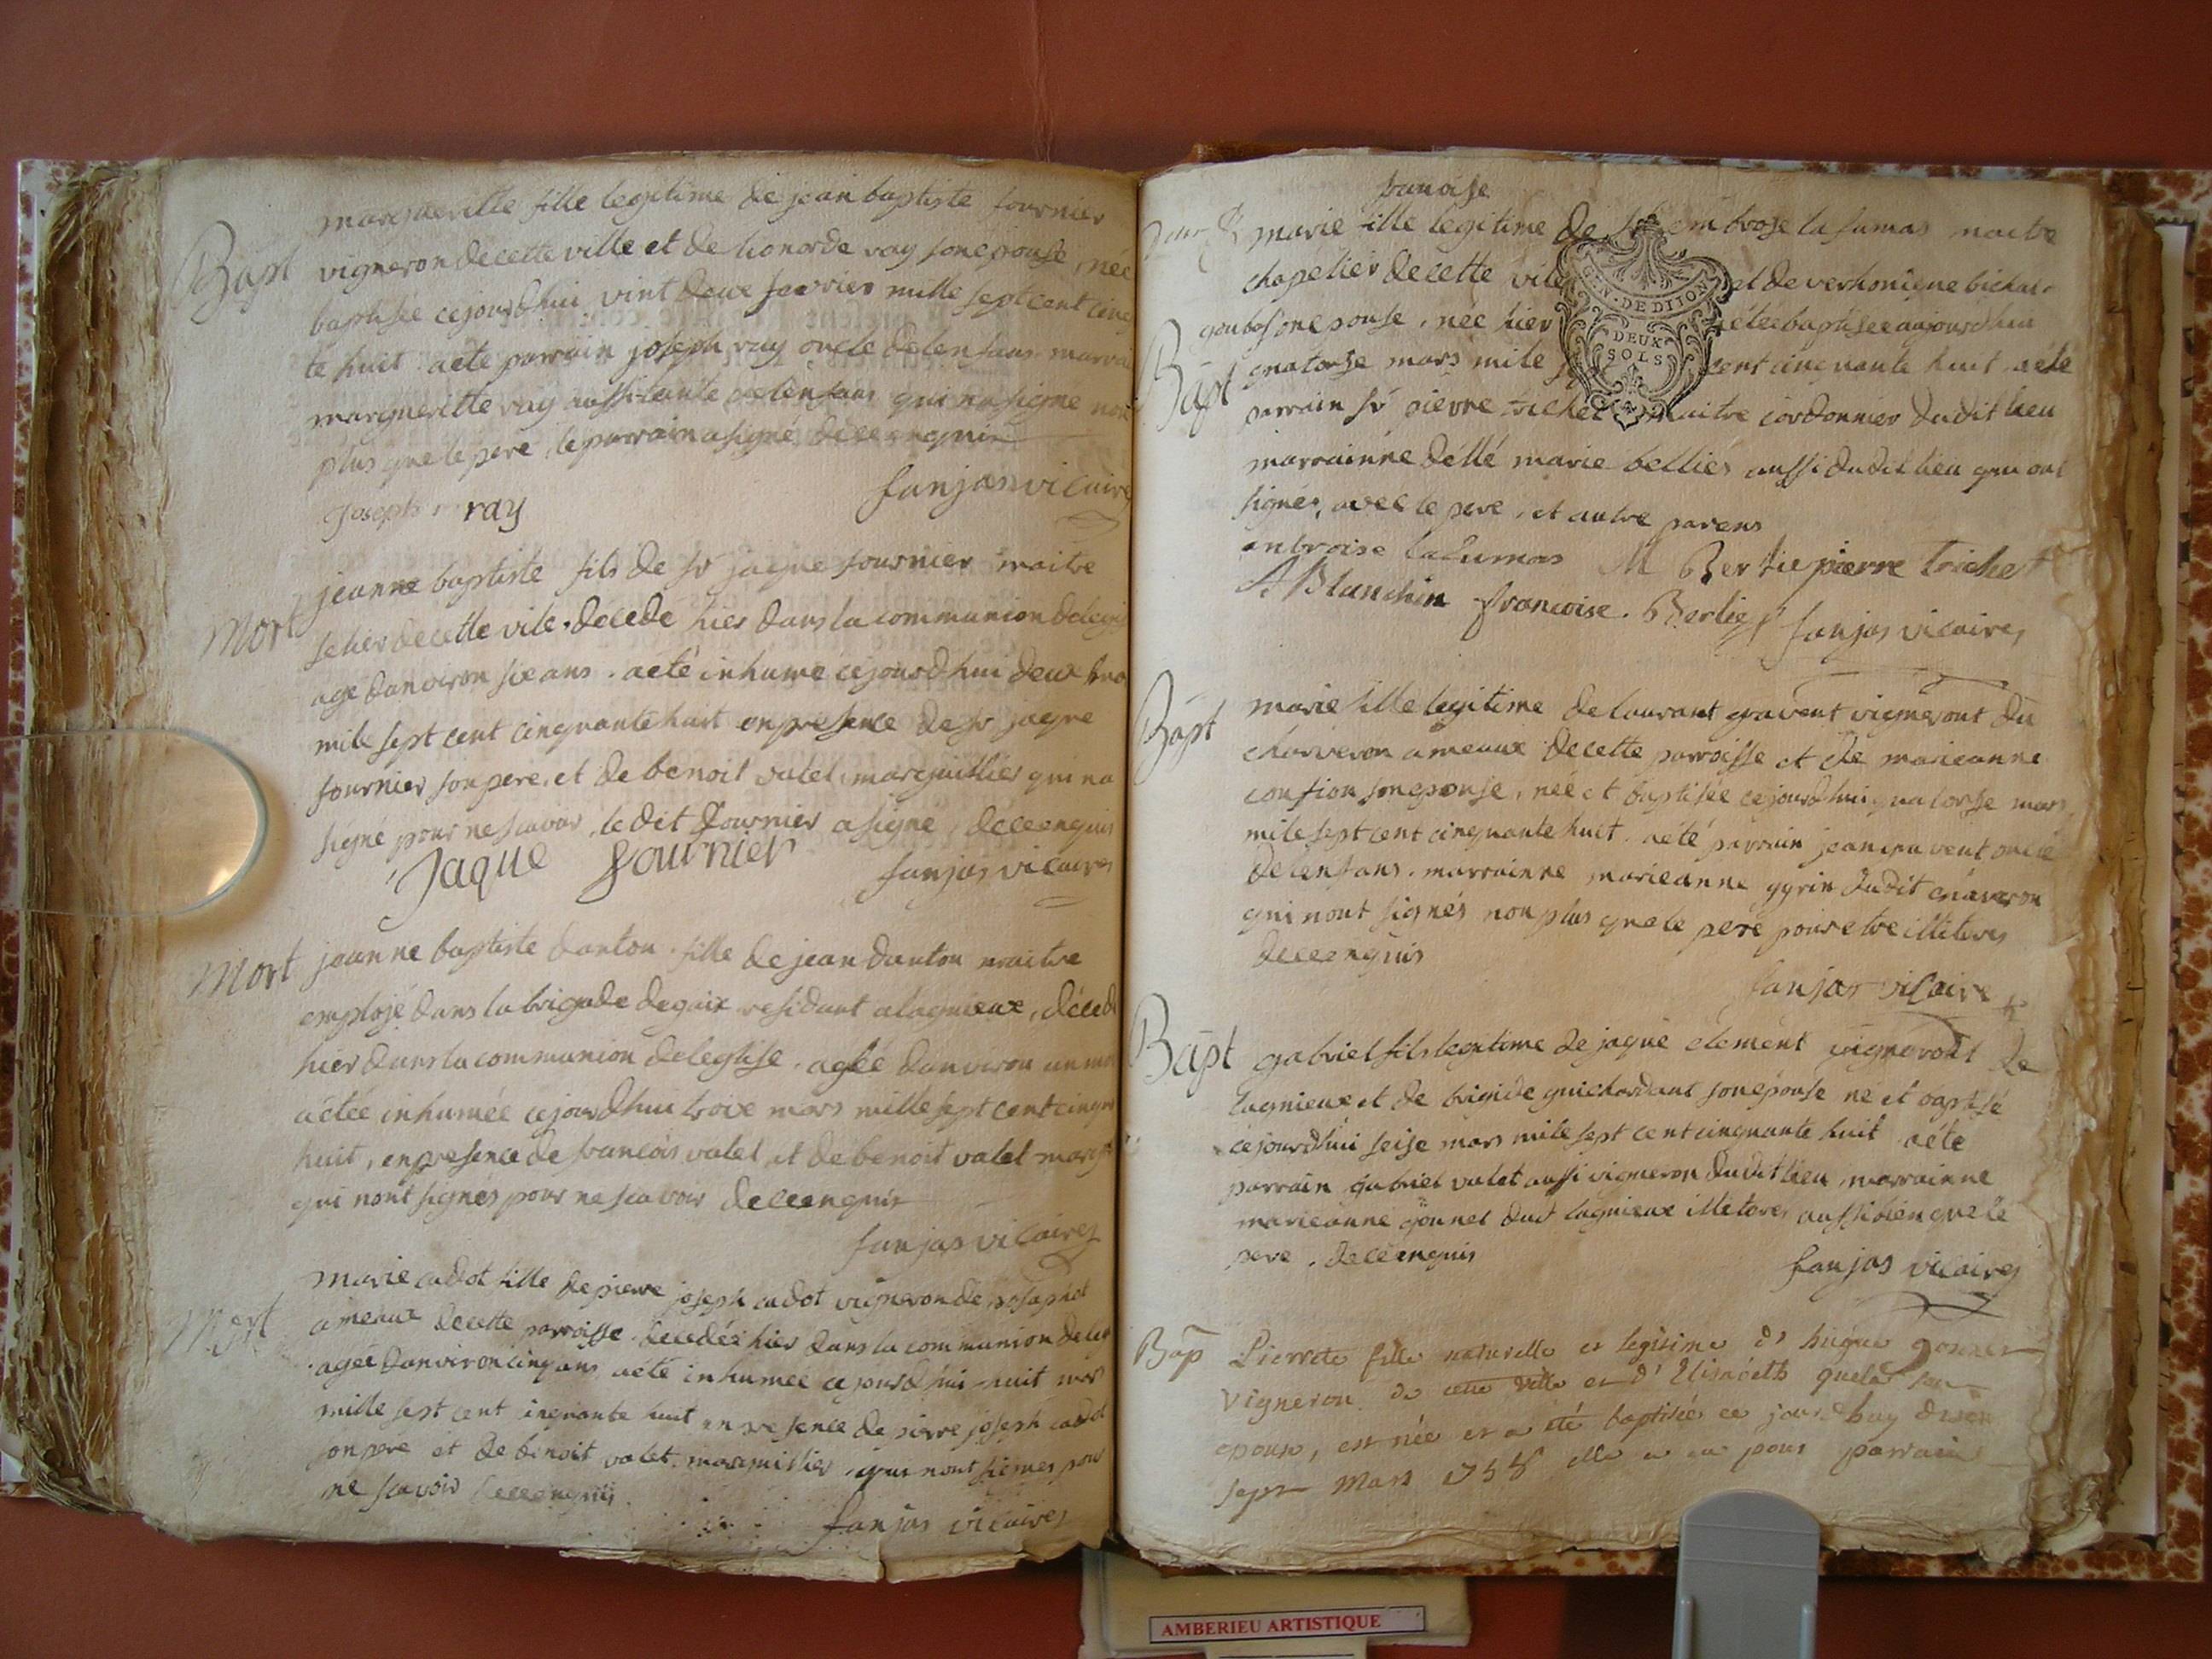 marguerille fille legitime de jean baptiste fournier
Bapt vigneron decette ville et de honorde ray son epouse, née
baptisée cejourdhui vint deux fevrier mille sept cent cinq
te huit aeté parrain joseph ray oncle delenfans marrai
margueritte ray aussi tante delenfans qui na signé non
plus que le pere, le parrain a signé, deceenquis
Joseph ray fanjas vicaire
jeanne baptiste fils de sr jaque fournier maitre
Mort selier decette vile. decede hier dans la communion delegli
age danviron six ans. aeté inhumé cejourdhui deux
mile sept cent cinquante huit en presence de sr jaque
fournier son pere, et de benoit valet, marguillier qui na
signé pour ne scavoir, ledit fournier a signé, deceenquis
Jaque fournier fanjas vicaires
Mort jeanne baptiste danton. fille de jean danton maitre
employé dans la brigade degaix residant alagnieux, décedé
hier dans la communion deleglise. ageé danviron un mo
aétée inhumée cejourdhui troix mars mille sept cent cinqu
huit, en presence de francois valet, et de benoit valet margu
qui nont signés pour ne scavoir deceenquis
fanjas vicaires
marie cadot fille de pierre joseph cadot vigneron de
Mort ameaux decette parroisse. decedée hier dans la communion deleg
ageé danviron cinq ans aeté inhumee cejourdhui huit mars
mille sept cent inquante huit en presence de pierre joseph cadot
son pere et de benoit valet. marguillier, qui nont signes pour
ne scavoir deceenquis.
fanjas vicaires
francoise
marie fille legitime de sr embrose lafumas maitre
chapelier decette vile et de verhonique bichar
son epouse, née hier aétée baptisée aujourdhui
GEN. DE DIJON
DEUX
SOLS
Bapt quatorse mars mile sept cent cinquante huit. aeté
parrain sr pierre trichet maitre cordonnier dudit lieu
marrainne déllé marie bellier aussi dudit lieu qui ont
signés, avec le pere, et autre parens
anbroise lafumas M Bertie pierre trichet
A Blanchin francoise. Berlie fanjas vicaires
Bapt marie fille legitime de laurant gravent vigneront du
charveron ameaux decette parroisse et de marieanne
confion son epouse, née et baptisée cejourdhui quatorse mars
mile sept cent cinquante huit. aeté parrain jean gravent oncle
delenfans. marrainne marieanne dudit
qui nont signés non plus que le pere pour etre illiteres
deceenquis
fanjas vicaire
Bapt gabriel fils legitime de jaque clement vigneront de
lagnieux et de brigide guichardant son epouse né et baptisé
cejourdhui seise mars mile sept cent cinquante huit aété
parrain gabriel valet aussi vigneron dudit lieu, marrainne
marieanne gonnet dud lagnieux illiteres aussi bien que le
pere. deceenquis
fanjas vicaires
Bap Pierrette fille naturelle et legitime d'hugue gonnet
vigneron de cette ville et d'Elisabeth son
epouse, est née et a été baptisée ce jourdhuy dixe
sept mars 1758 elle a eu pour parrain
AMBERIEU ARTISTIQUE